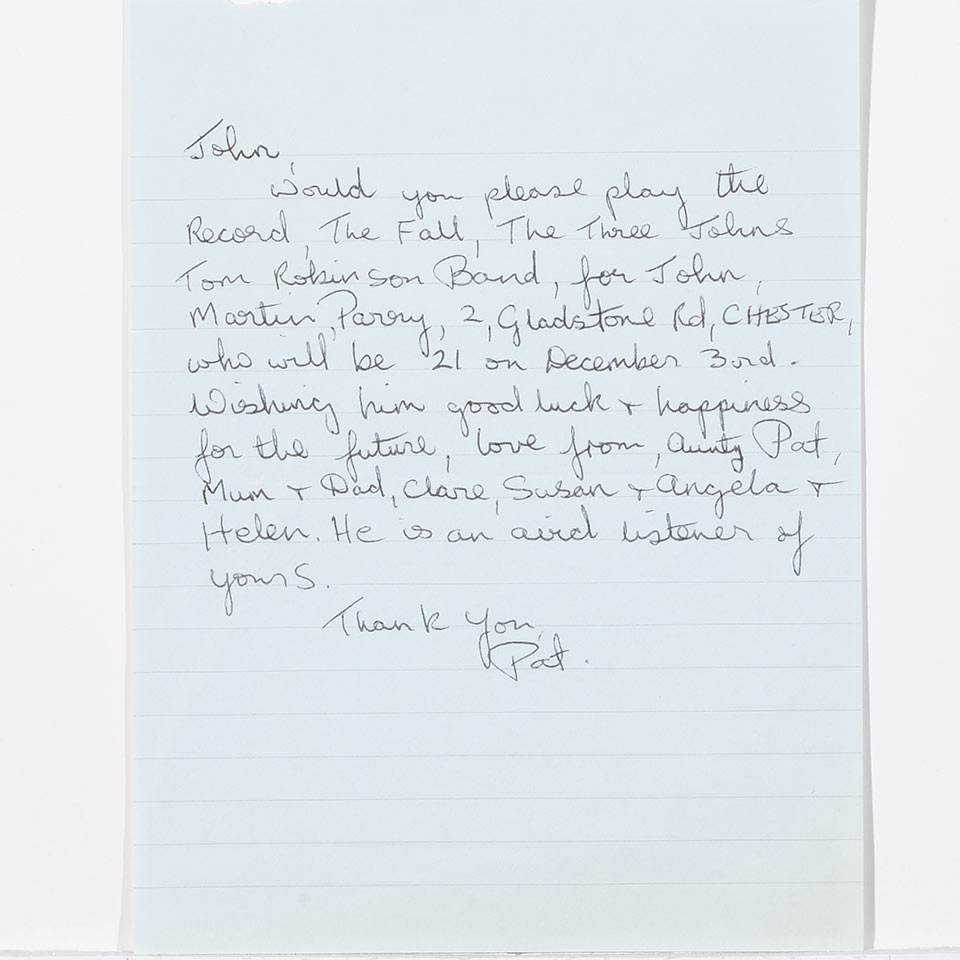 John,
Would you please play the
Record, The Fall, The Three Johns
Tom Robinson Band, for John,
Martin, Parry, 2, Gladstone Rd, CHESTER,
who will be 21 on December 3rd.
Wishing him good luck + happiness
for the future, love from, Aunty Pat,
Mum + Dad, Clare, Susan + Angela +
Helen. He is an avid listener of
yours.
Thank You,
Pat.